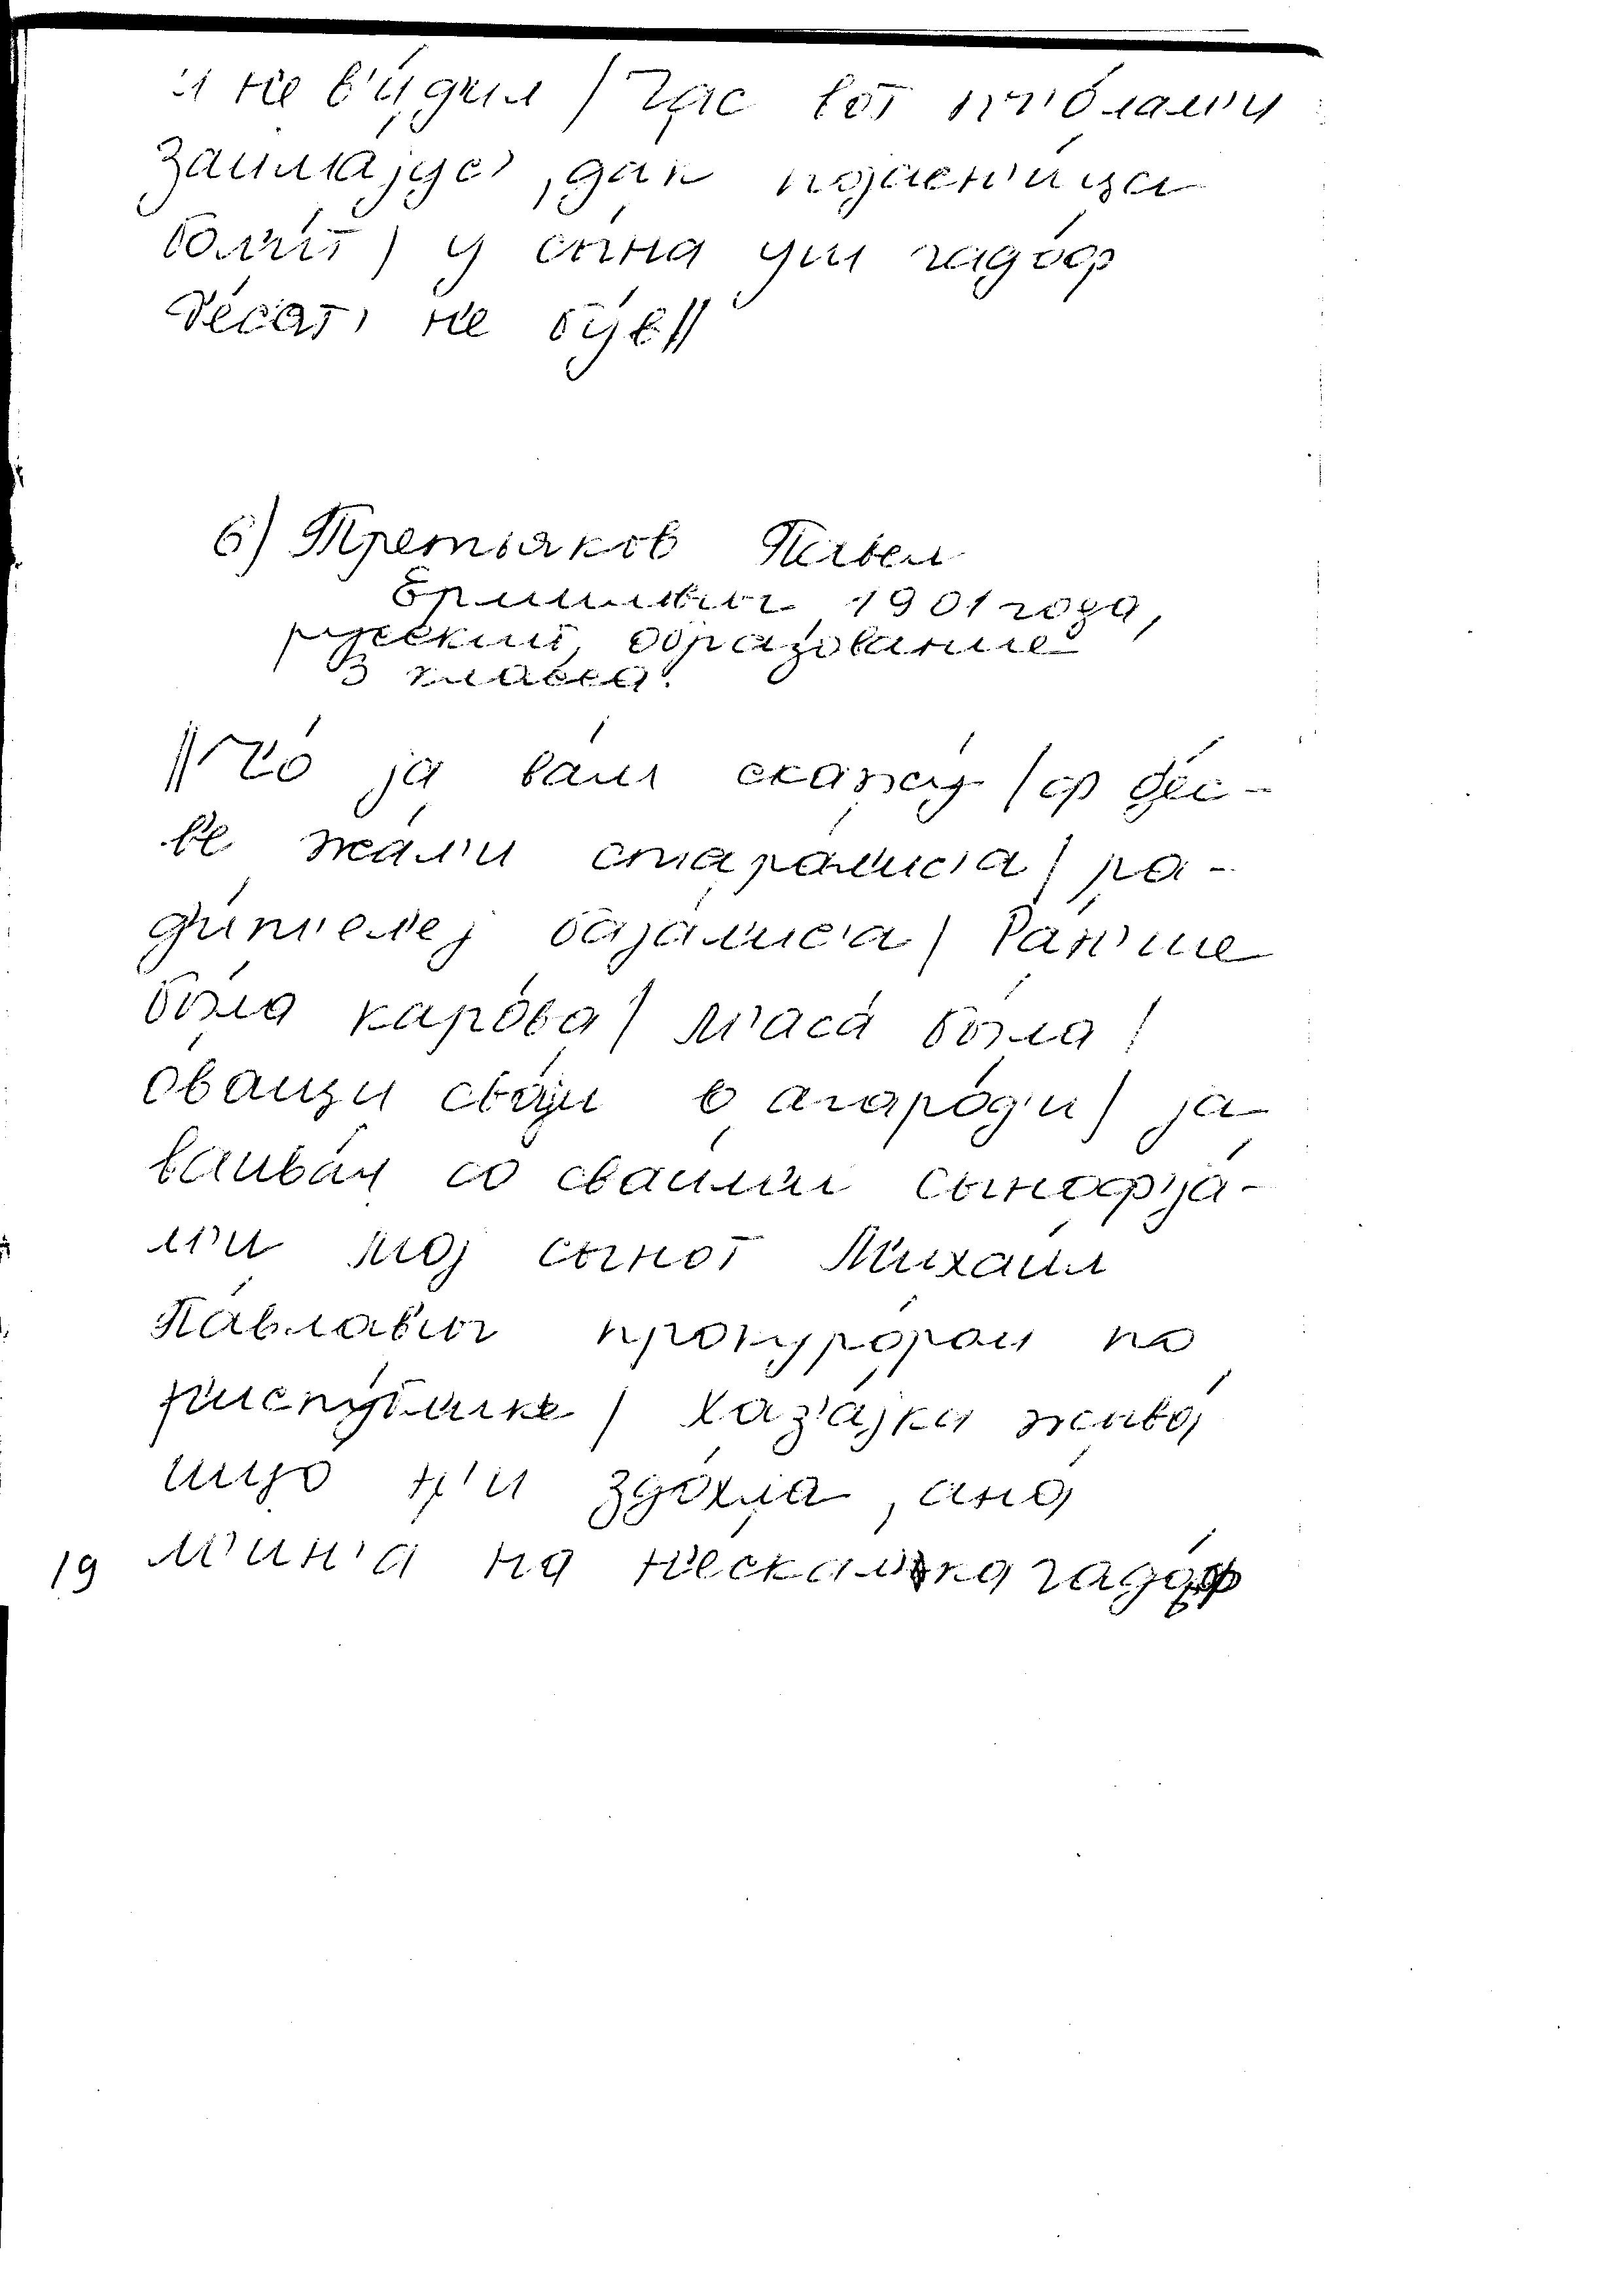 и н'е в'и́д'ил / Ча́с вот пч'о́лам'и
займа́јус', да́к појасн'и́ца
бол'и́т / у сы́на уш гадо́ф
д'е́сат' н'е бу́в //
6) Третьяков Павел
1901 года,
русский, образование
3 класса.
// Ч'о́ ја ва́м скажу́ / ф д'е́с-
в'е жа́л'и стара́л'ис'а / ра-
д'и́т'ел'еј баја́л'ис'а / Ра́н'ше
бы́ла каро́ва / м'аса́ бы́ла /
о́ващи сваји́ в агаро́д'и / ја
ваива́л со сваи́м'и сынов'ја́-
м'и мој сыно́т М'ихаи́л
Па́влав'ич прокуро́ром по
р'испу́бл'ик'е / Хаз'а́јка жыва́
ищо́ н'и здо́хла, ана́
19 м'ин'а́ на н'е́скал'ка гадо́ф